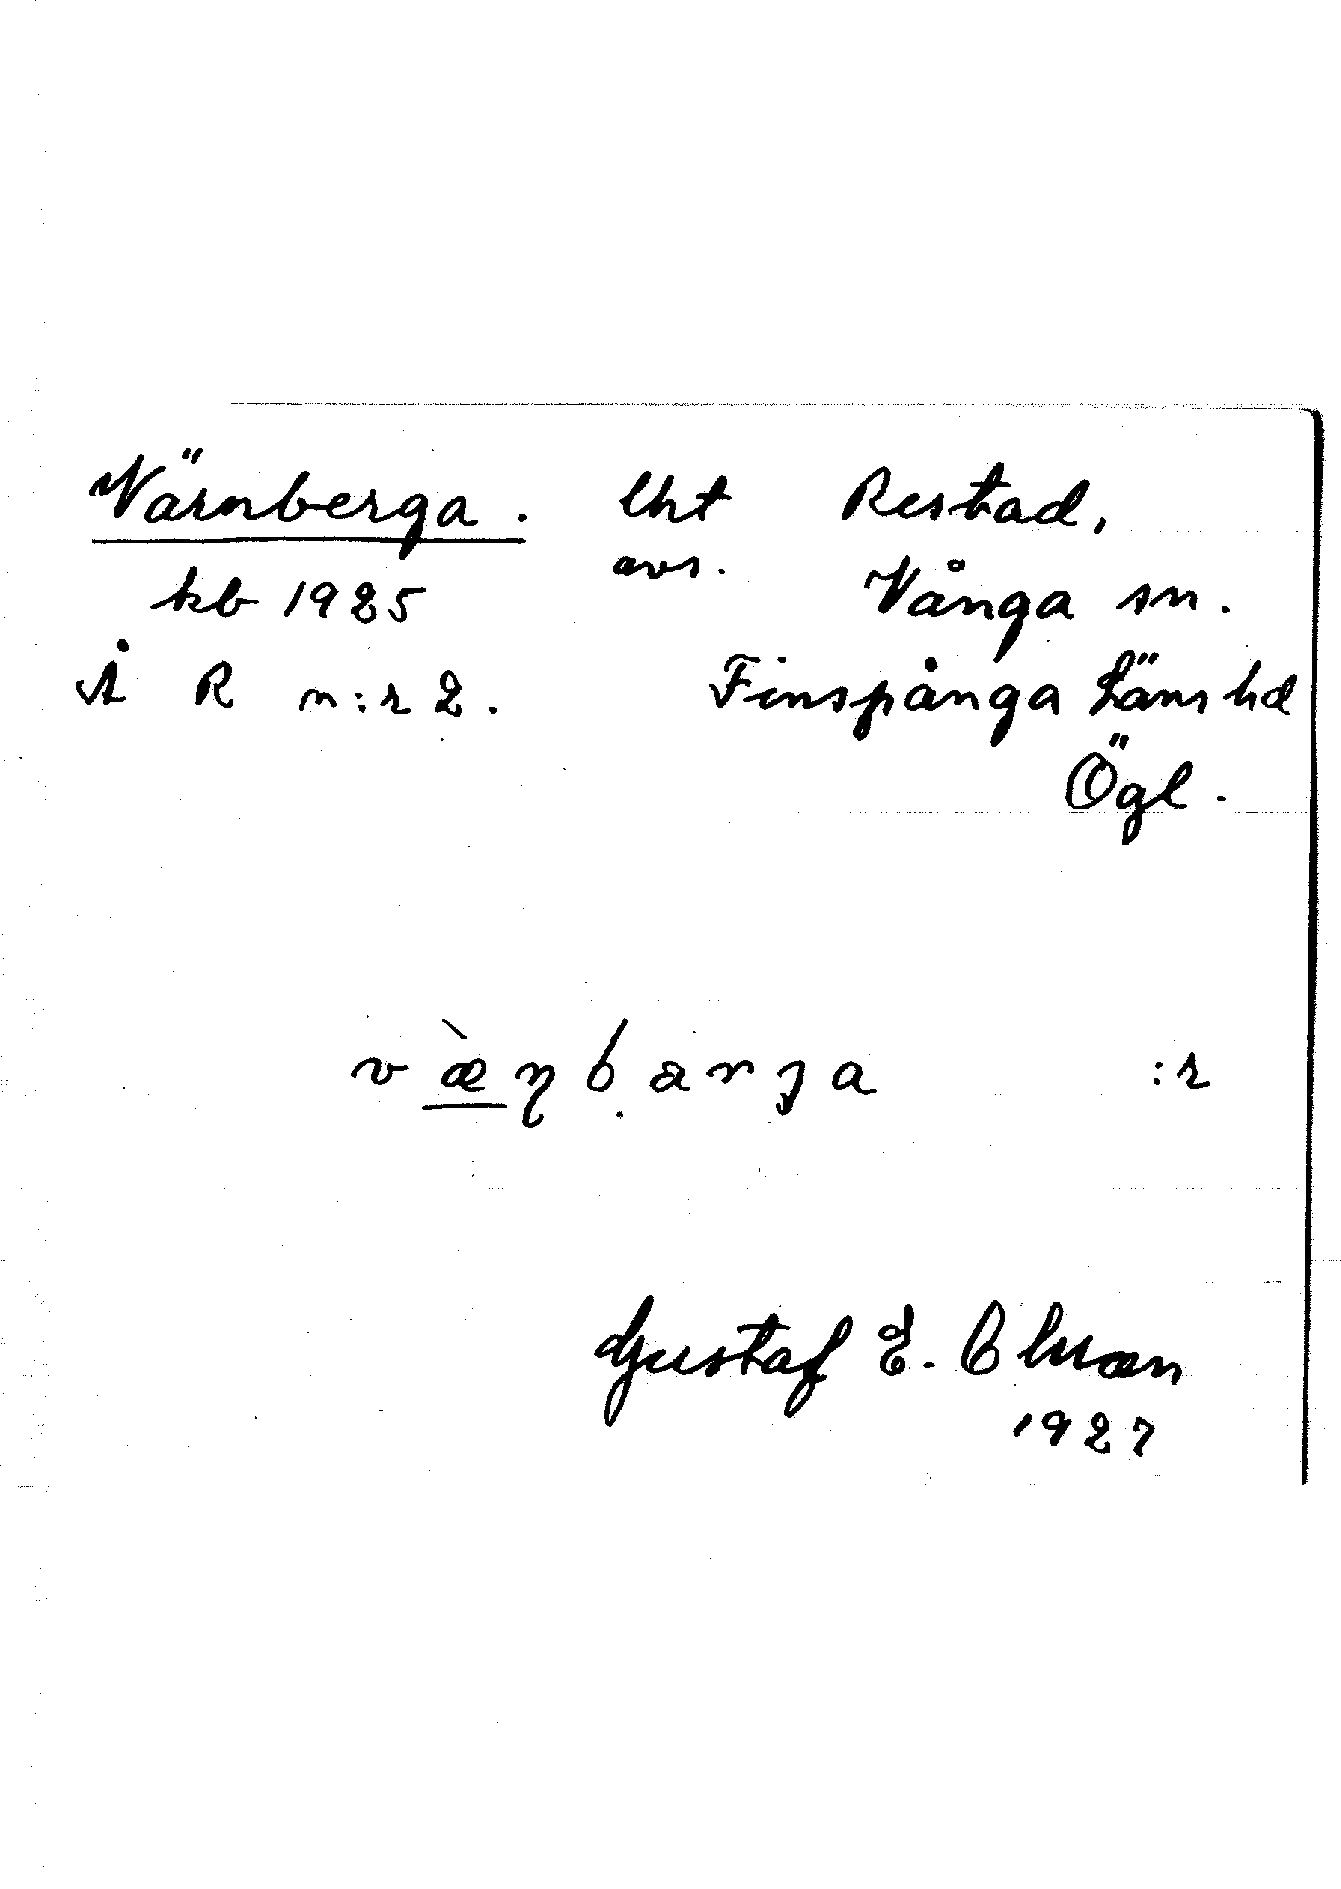 Värnberga. lht Restad,
kb 1925 avs. Vånga sn.
Å R n:r 2. Finspånga Läns hd
Ögl.
væ̀ɳbarga :r
Gustaf E.
1927